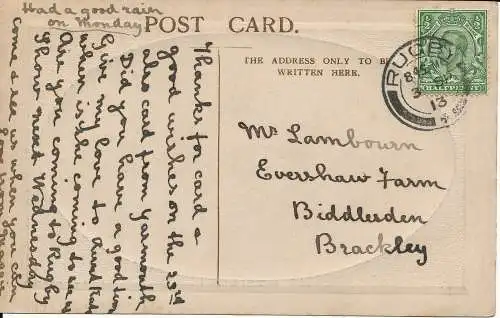 Had a good rain
on Monday
POST CARD.
THE ADDRESS ONLY TO BE
WRITTEN HERE.
RUGBY
13
HALFPENNY
Mr Lambourn
Evershaw Farm
Biddlesden
Brackley
Thanks for card &
good wishes on the 23rd
also card from Yarmouth
Did you have a good time
Give my love to Aunt Kate
when is she coming to see us
Are you coming to Rugby
Show next Wednesday
come & see us when you can
love from Maggie